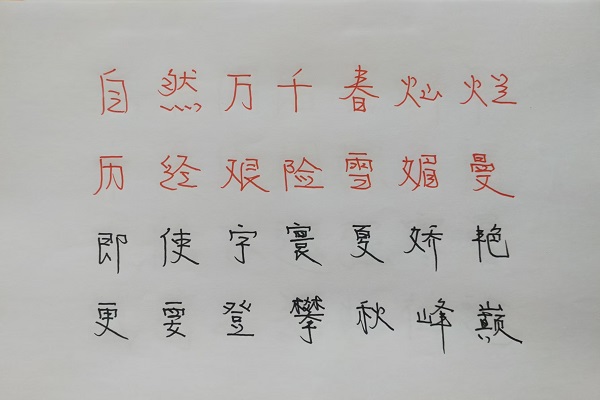 自然万千春灿烂
历经艰险雪媚曼
即使字寰夏娇艳
更要登攀秋峰巅